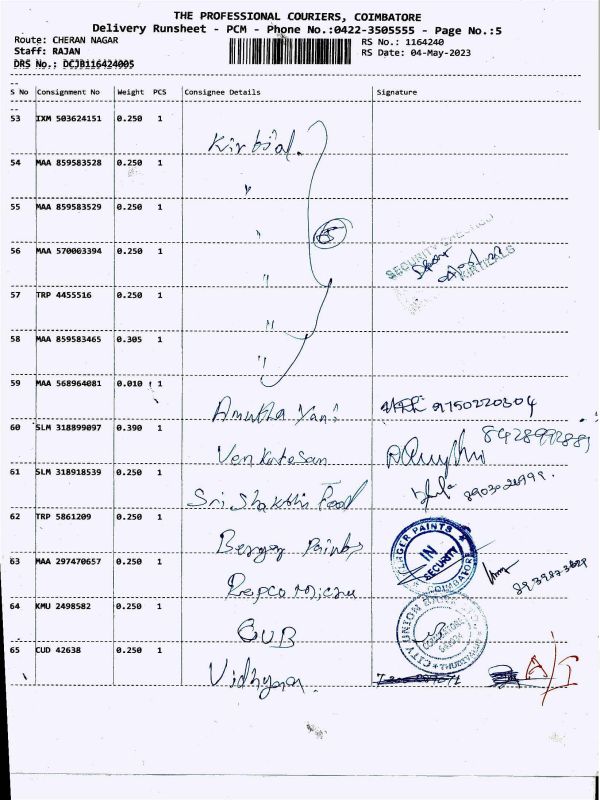 THE PROFESSIONAL COURIERS, COIMBATORE
Delivery Runsheet - PCM - Phone No.:0422-3505555 - Page No.:5
Route: CHERAN NAGAR RS No.: 1164240
Staff: RAJAN RS Date: 04-May-2023
DRS No.: DCJB116424005
S No Consignment No Weight PCS Consignee Details Signature
53 IXM 503624151 0.250 1
54 MAA 859583528 0.250 1
"
55 MAA 859583529 0.250 1
"
56 MAA 570003394 0.250 1
SECURITY
"
57 TRP 4455516 0.250 1
"
58 MAA 859583465 0.305 1
"
59 MAA 568964081 0.010 1
Amutha Vani 9750220304
60 SLM 318899097 0.390 1
Venkatesan 8428992889
61 SLM 318918539 0.250 1
Sri Shakthi Food
62 TRP 5861209 0.250 1
Berger Paints BERGER PAINTS IN SECURITY COIMBATORE
63 MAA 297470657 0.250 1
Repco Micro
64 KMU 2498582 0.250 1
CUB CITY UNION
65 CUD 42638 0.250 1
A/T